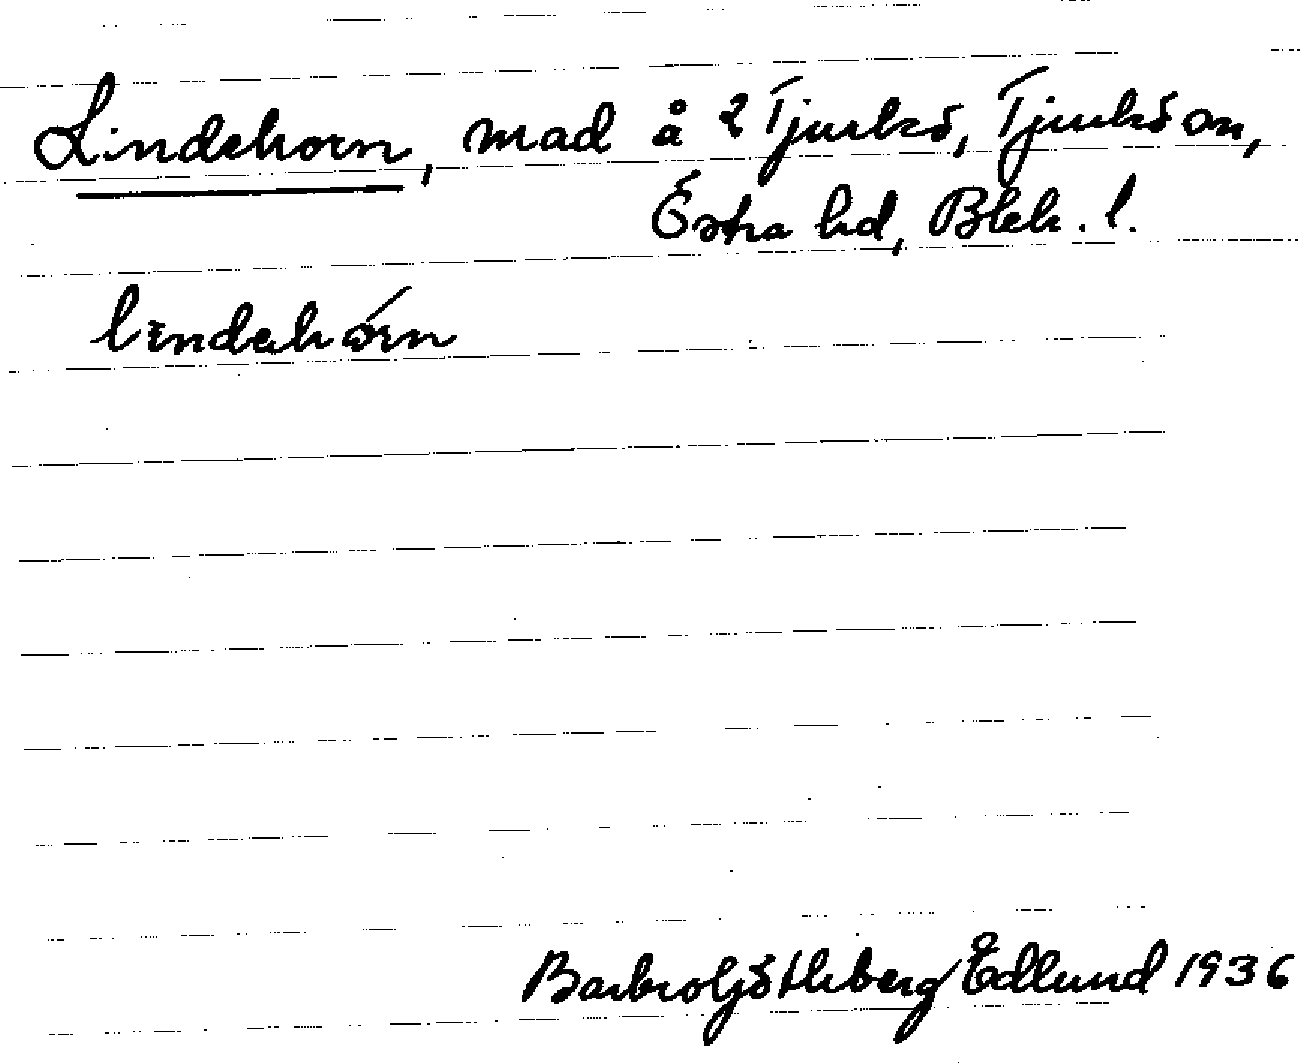 Lindehorn, mad å 2 Tjurkö, Tjurkö sn,
Östra hd, Blek. l.
lindehörn
Barbro Götlberg Edlund 1936